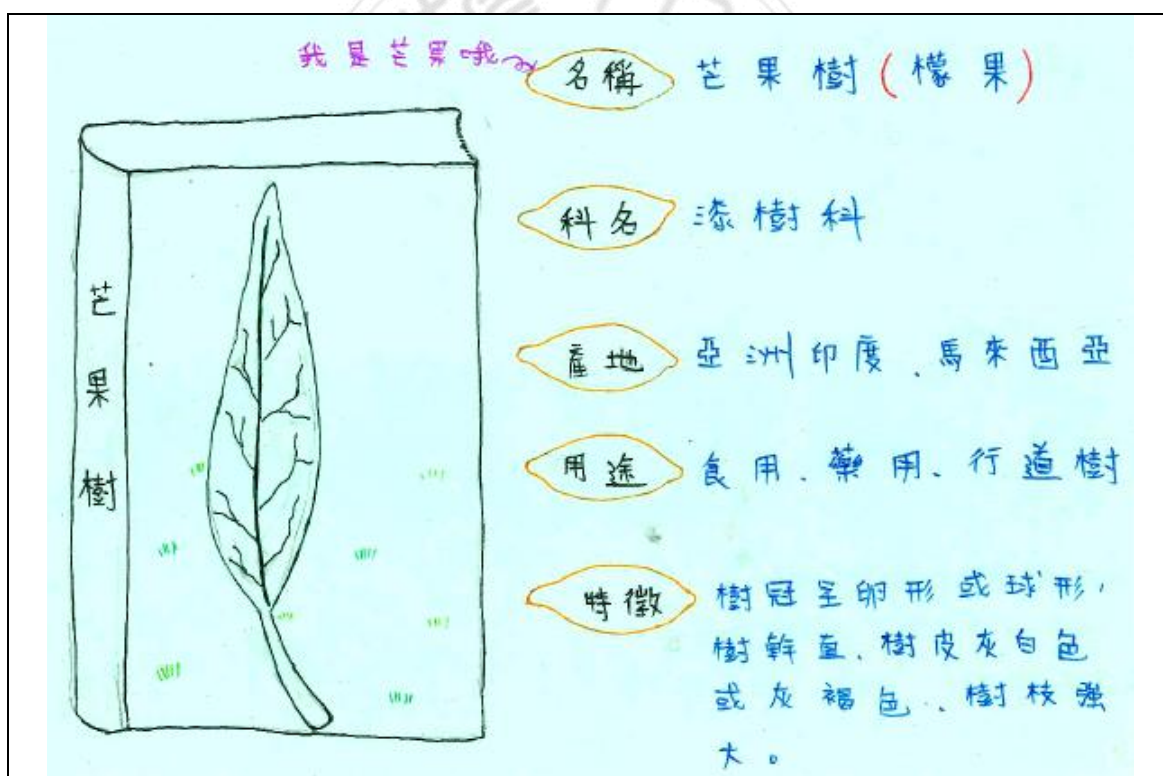 我是芒果哦~
名稱 芒果樹(檬果)
科名 漆樹科
產地 亞洲印度、馬來西亞
用途 食用、藥用、行道樹
特徵 樹冠呈卵形或球形,
樹幹直、樹皮灰白色
或灰褐色、樹枝強
大。
芒果樹